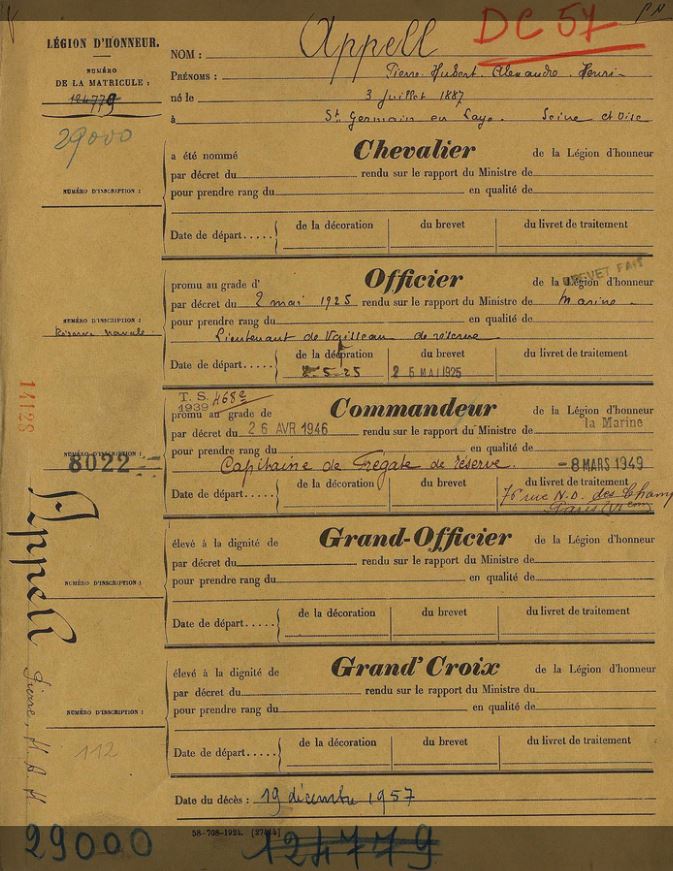 DC 57
LÉGION D'HONNEUR.
NUMÉRO
DE LA MATRICULE :
124779
29000
NOM : Appell
PRÉNOMS : Pierre Hubert Alexandre Henri
né le 3 Juillet 1887
à St Germain en Laye. Seine et Oise
a été nommé Chevalier de la Légion d'honneur
par décret du rendu sur le rapport du Ministre de
pour prendre rang du en qualité de
NUMÉRO D'INSCRIPTION :
de la décoration du brevet du livret de traitement
Date de départ.....
BREVET FAIT
promu au grade d' Officier de la Légion d'honneur
par décret du 2 mai 1925 rendu sur le rapport du Ministre de Marine
pour prendre rang du en qualité de
NUMÉRO D'INSCRIPTION :
Réserve navale
Lieutenant de Vaisseau de réserve
de la décoration du brevet du livret de traitement
Date de départ..... 5-25 25 MAI 1925
14128
T. S. 468e
1939
promu au grade de Commandeur de la Légion d'honneur
par décret du 26 AVR 1946 rendu sur le rapport du Ministre de la Marine
pour prendre rang du en qualité de
NUMÉRO D'INSCRIPTION :
8022
Capitaine de Frégate de réserve. -8 MARS 1949
de la décoration du brevet du livret de traitement
Date de départ..... 76 rue N.D. des Champ
Paris
élevé à la dignité de Grand-Officier de la Légion d'honneur
par décret du rendu sur le rapport du Ministre de
pour prendre rang du en qualité de
NUMÉRO D'INSCRIPTION :
de la décoration du brevet du livret de traitement
Date de départ.....
Appell Pierre, H. A. H
élevé à la dignité de Grand'Croix de la Légion d'honneur
par décret du rendu sur le rapport du Ministre du
pour prendre rang du en qualité de
NUMÉRO D'INSCRIPTION :
112
de la décoration du brevet du livret de traitement
Date de départ.....
Date du décès : 19 décembre 1957
58-708-1924.
29000 124779